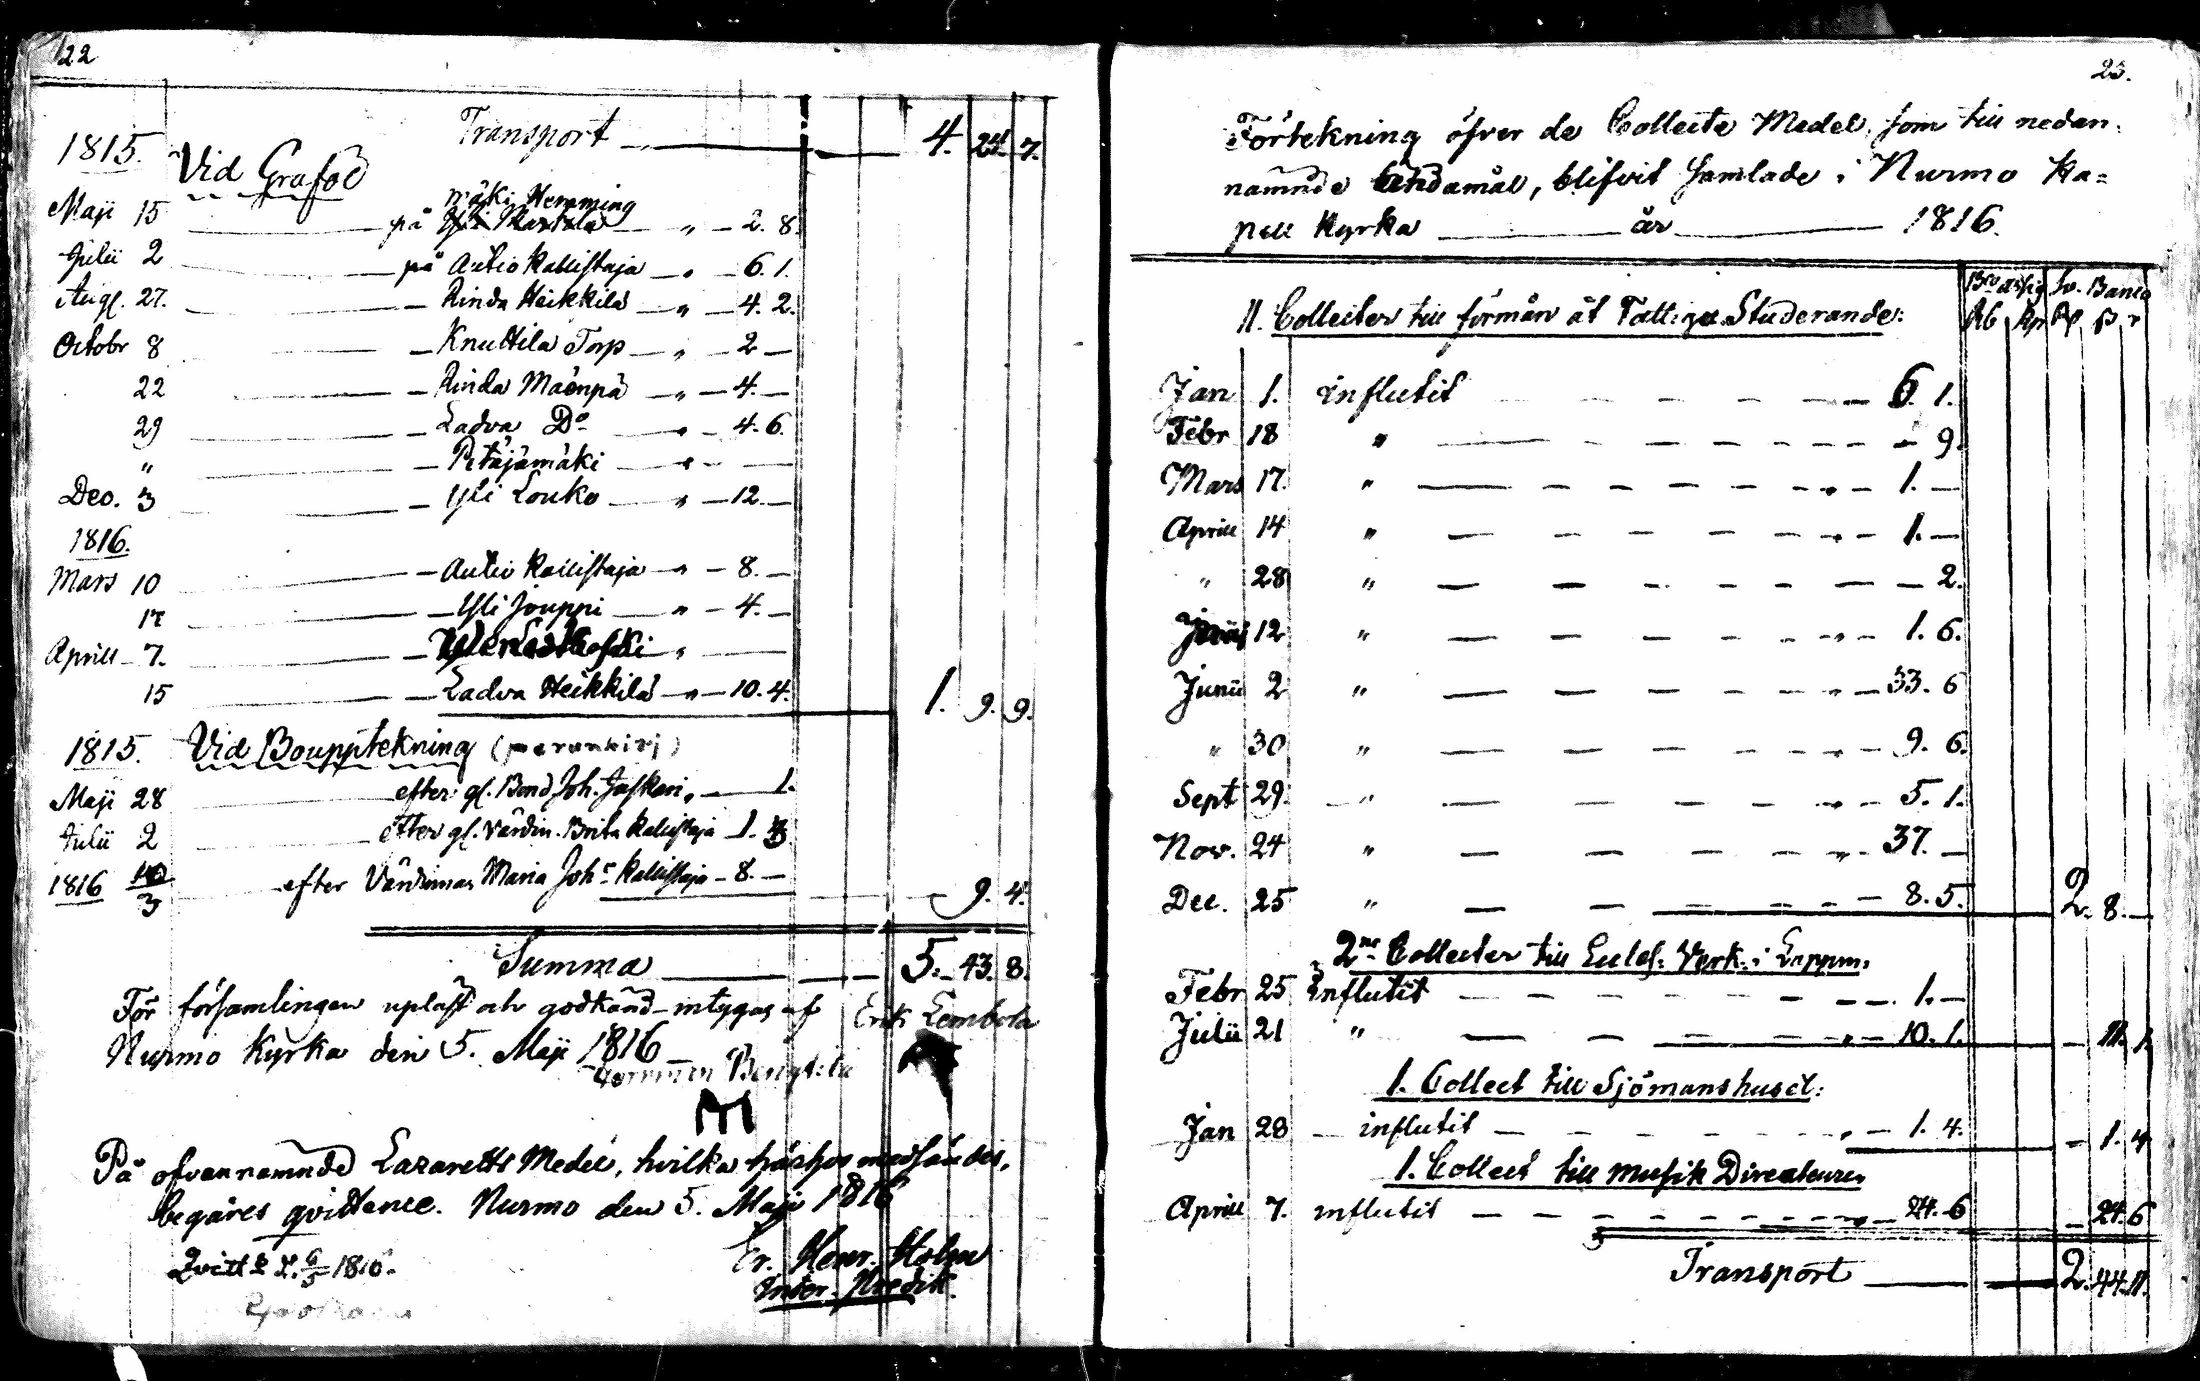 22
Transport 4. 24. 7.
1815. Vid Graföl
mäki Hemming
Maji 15 på " 2. 8.
Julii 2 på Autio Kallistaja " 6. 1.
Aug. 27. Rinda Heikkilä " 4. 2.
Octobr 8 Knuttila Torp " 2
22 Rinda Mäenpä " 4.
29 Ladva Do 4. 6.
" Petäjämäki
Dec. 3 Yli Louko " 12.
1816.
Mars 10 Autio Kallistaja " 8.
17 Yli Jouppi " 4.
Aprill 7. "
15 Ladva Heikkilä " 10. 4. 1. 9. 9.
1815. Vid Bouppteknïng (perunkirj)
Maji 28 efter gl. Bond Joh. Jaskari, 1.
Julii 2 efter gl. Värdin. Brita Kallistaja 1. 3
1816 10/3 efter Värdinnan Maria Johs Kallistaja 8. 9. 4.
Summa 5. 43. 8.
För församlingen upläst och godkänd intygas af Erik Lembola
Nurmo Kyrka den 5. Maji 1816 Bengtila
På ofvannämnde Lazaretts Medel, hvilka härhos medsändes,
begäres qvittence. Nurmo den 5. Maji 1816
Er. Henr. Holm
Qvitt d. 9/5 1816.
23.
Förtekning öfver de Collecte Medel, som till nedan-
nämnde ändamål, blifvit samlade i Nurmo Ka=
pell Kyrka år 1816.
Bco assig Sv. Banco
11. Collecter till förmån åt Fattige Studerande: Rb Kp Rd ß r
Jan 1. influtit 6. 1.
Febr 18 " 9.
Mars 17. " 1.
Aprill 14 " 1.
" 28 " 2.
12 " 1. 6.
Junii 2 " 33. 6
" 30 " 9. 6.
Sept 29. " 5. 1.
Nov. 24 " 37.
Dec. 25 " 8. 5. 2. 8.
2ne Collecter till Eccles. Verk. i Lappm.
Febr 25 influtit 1.
Julii 21 " 10. 1. 11. 1.
1. Collect till Sjömanshuset:
Jan 28 influtit 1. 4. 1. 4
1. Collect till Musik Directeuren
Aprill 7. influtit 24. 6 24. 6
Transport 2. 44. 11.